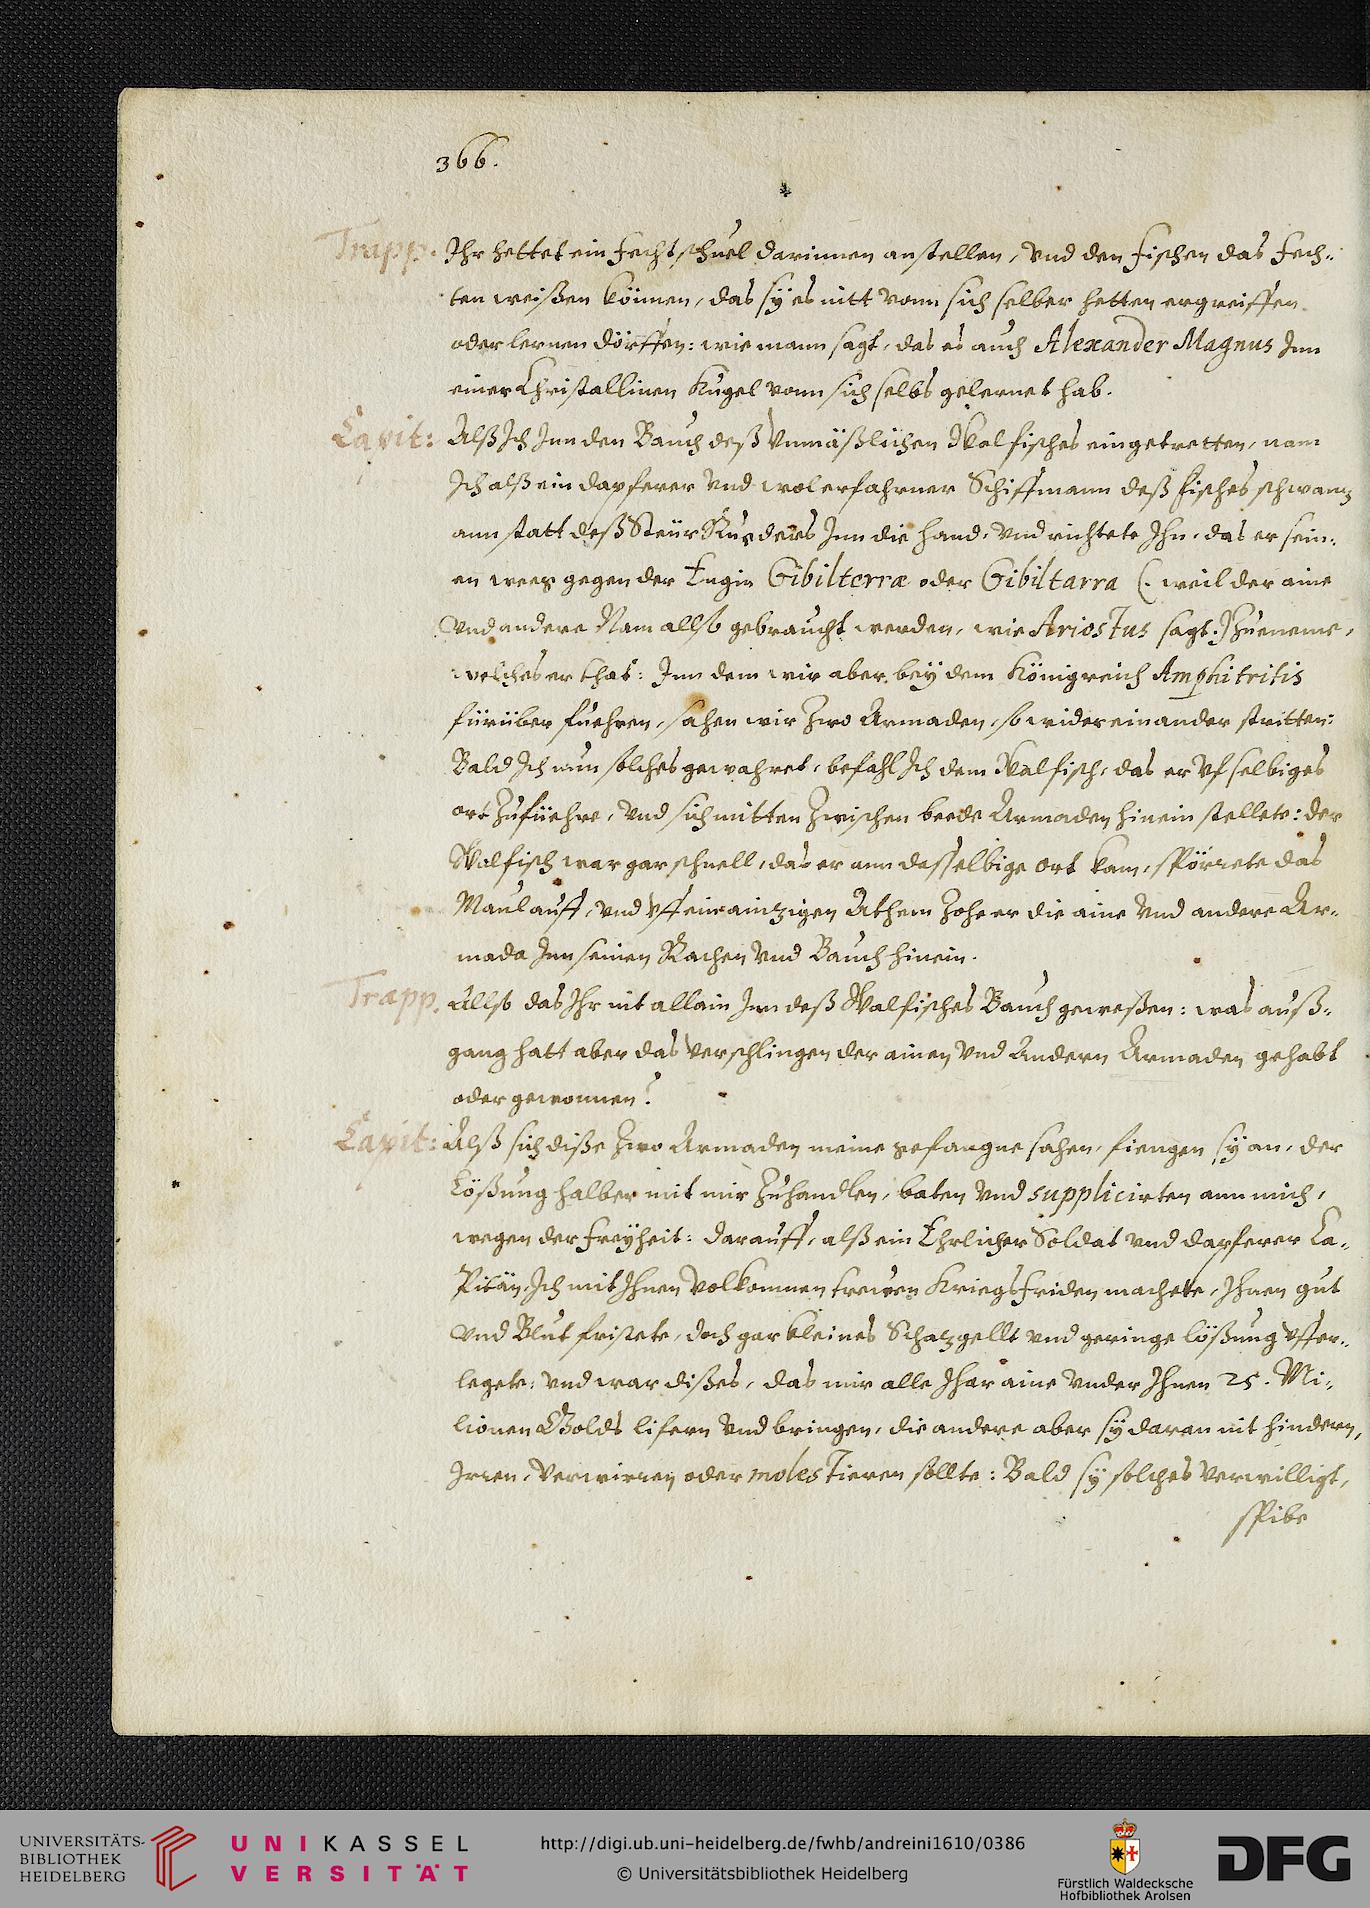 366.
Trapp. Ihr hettet ein Fechtschuel darinnen anstellen, vnd den Fischen das Fech-
ten weißen können, das sÿ es nitt vonn sich selber hetten ergreiffen
oder lernen dörffen: wie mann sagt, das es auch Alexander Magnus Inn
einer Christallinen Kugel vonn sich selbs gelernet hab.
Capit: Alß Ich Inn den Bauch deß Vnmäßlichen Walfisches eingetretten, nam
Ich alß ein dapferer vnd wolerfahrner Schiffmann deß Fisches schwantz
ann statt deß Steür Ruders Inn die hand, vnd richtete Ihn, das er sein-
en weeg gegen der Engin Gibilterræ oder Gibiltarra (. weil der aine
vnd andere Nam allso gebraucht werden, wie Ariostus sagt.) Zueneme,
welches er that: Inn dem wir aber beÿ dem Königreich Amphitritis
fürüber fuehren, sahen wir Zwo Armaden, so wider einander stritten:
Bald Ich nun solches gewahret, befahl Ich dem Walfisch, das er vf selbiges
ort Zuführe, vnd sich mitten Zwischen beede Armaden hinein stellete: der
Walfisch war gar schnell, das er ann dasselbige ort kam, spörrete das
Maul auff, vnd vff ein aintzigen Athem Zohe er die aine vnd andere Ar-
mada Inn seinen Rachen vnd Bauch hinein.
Trapp. Allso das Ihr nit allain Inn deß Walfisches Bauch geweßen: was auß-
gang hatt aber das verschlingen der ainen vnd Andern Armaden gehabt
oder gewonnen?
Capit: Alß sich diße Zwo Armaden meine gefangne sahen, fiengen sÿ an, der
Lößung halber mit mir Zuhandlen, baten vnd supplicirten ann mich,
wegen der Freÿheit: darauff, alß ein Ehrlicher Soldat vnd dapferer Ca-
Pitän, Ich mit Ihnen Volkomnen trewen Kriegsfriden machete, Ihnen gut
vnd Blut fristete, doch gar kleines Schatzgellt vnd geringe lößung vffer-
legete: vnd war dißes, das mir alle Ihar aine vnder Ihnen 25. Mi-
lionen Golds lifern vnd bringen, die andere aber sÿ daran nit hindern,
Irren, Verwirren oder molestieren sollte: Bald sÿ solches verwilligt,
spibe
UNIVERSITÄTS-
BIBLIOTHEK
HEIDELBERG
UNIKASSEL
VERSITÄT
http://digi.ub.uni-heidelberg.de/fwhb/andreini1610/0386
© Universitätsbibliothek Heidelberg
Fürstlich Waldecksche
Hofbibliothek Arolsen
DFG